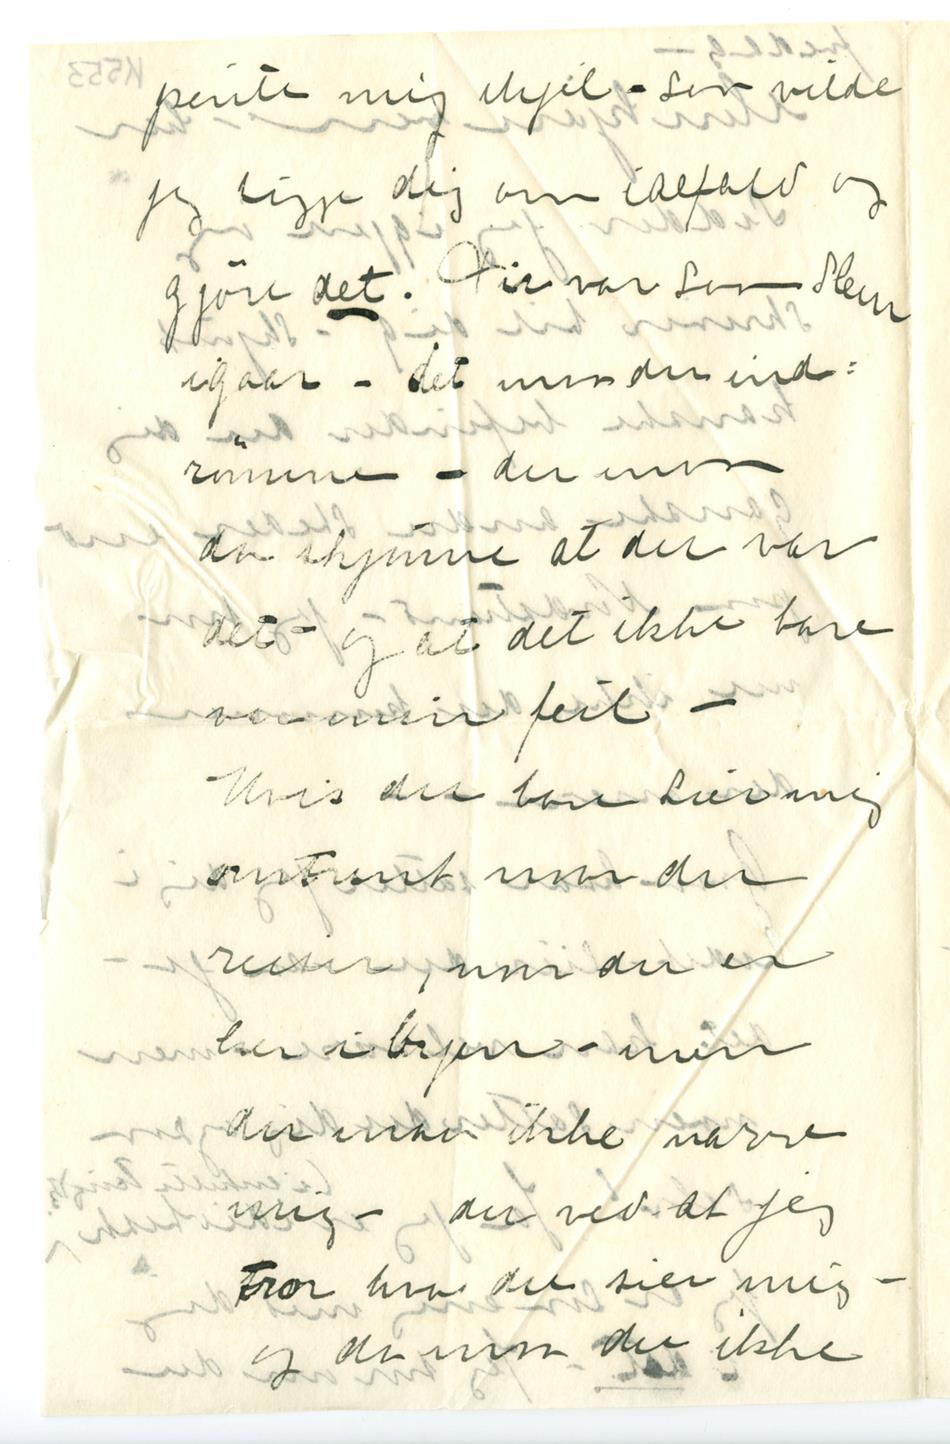 pente mig ihjel – som vilde
jeg ligge dig om ialfald og
gjöre det. Der var som Slem
igaar – det maa du ind=
römme – du maa
da skjönne at du var
det – og at det ikke bare
var min feil –
Hvis du bare sier mig
omtrent naar du
reiser, naar du er
her i byen – men
du maa ikke narre
mig – du ved at jeg
tror hva du sier mig –
og da maa du ikke